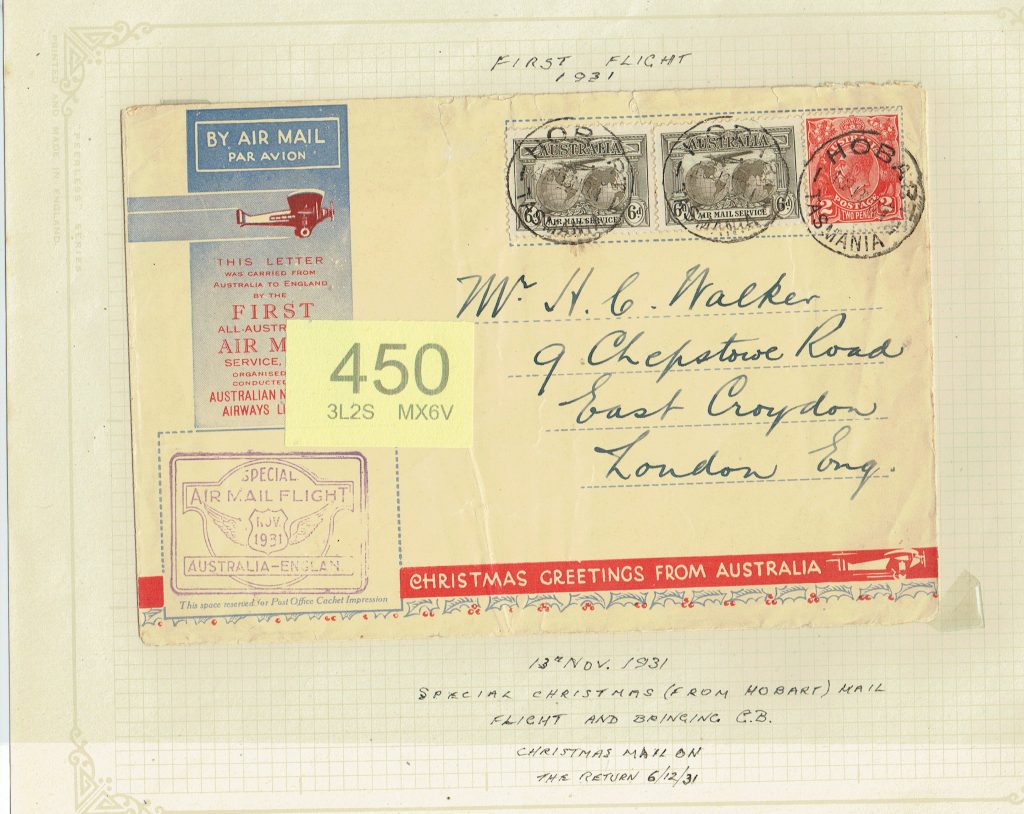 FIRST FLIGHT
1931
PRINTED AND MADE IN ENGLAND
"PEERLESS" SERIES
BY AIR MAIL
PAR AVION
THIS LETTER
WAS CARRIED FROM
AUSTRALIA TO ENGLAND
BY THE
FIRST
ALL-AUSTR
AIR M
SERVICE,
ORGANISED
CONDUCTED
AUSTRALIAN N
AIRWAYS LI
450
3L2S MX6V
AUSTRALIA
6d AIR MAIL SERVICE 6d
AUSTRALIA
6d AIR MAIL SERVICE 6d
POSTAGE
TWO PENCE
HOBART
TASMANIA
Mr. H. C. Walker
9 Chepstowe Road
East Croydon
London Eng.
SPECIAL
AIR MAIL FLIGHT
NOV.
1931
AUSTRALIA-ENGLAN
This space reserved for Post Office Cachet Impression
CHRISTMAS GREETINGS FROM AUSTRALIA
13TH NOV. 1931
SPECIAL CHRISTMAS (FROM HOBART) MAIL
FLIGHT AND BRINGING G.B.
CHRISTMAS MAIL ON
THE RETURN 6/12/31